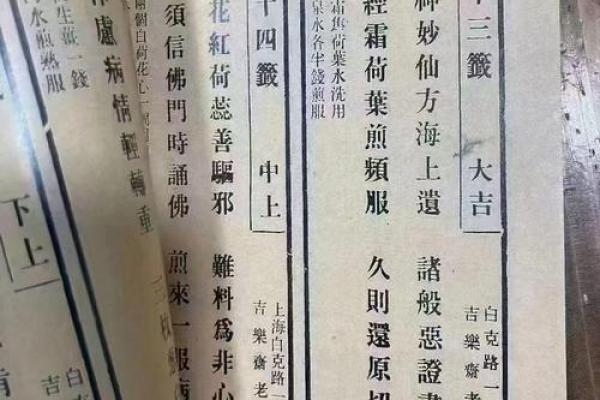 三籤 大吉
白克路一
吉樂齋老
神妙仙方海上遺 諸般惡證
經霜荷葉煎頻服 久則還原
霜舊荷葉水洗用
泉水各半錢煎服
十四籤 中上
上海白克路一
吉樂齋老
花紅荷蕊善驅邪 難料爲非心
須信佛門時誦佛 煎來一服病
兩個白荷花心一
慮病情輕轉重
一錢
水煎熟服
下上
白
吉